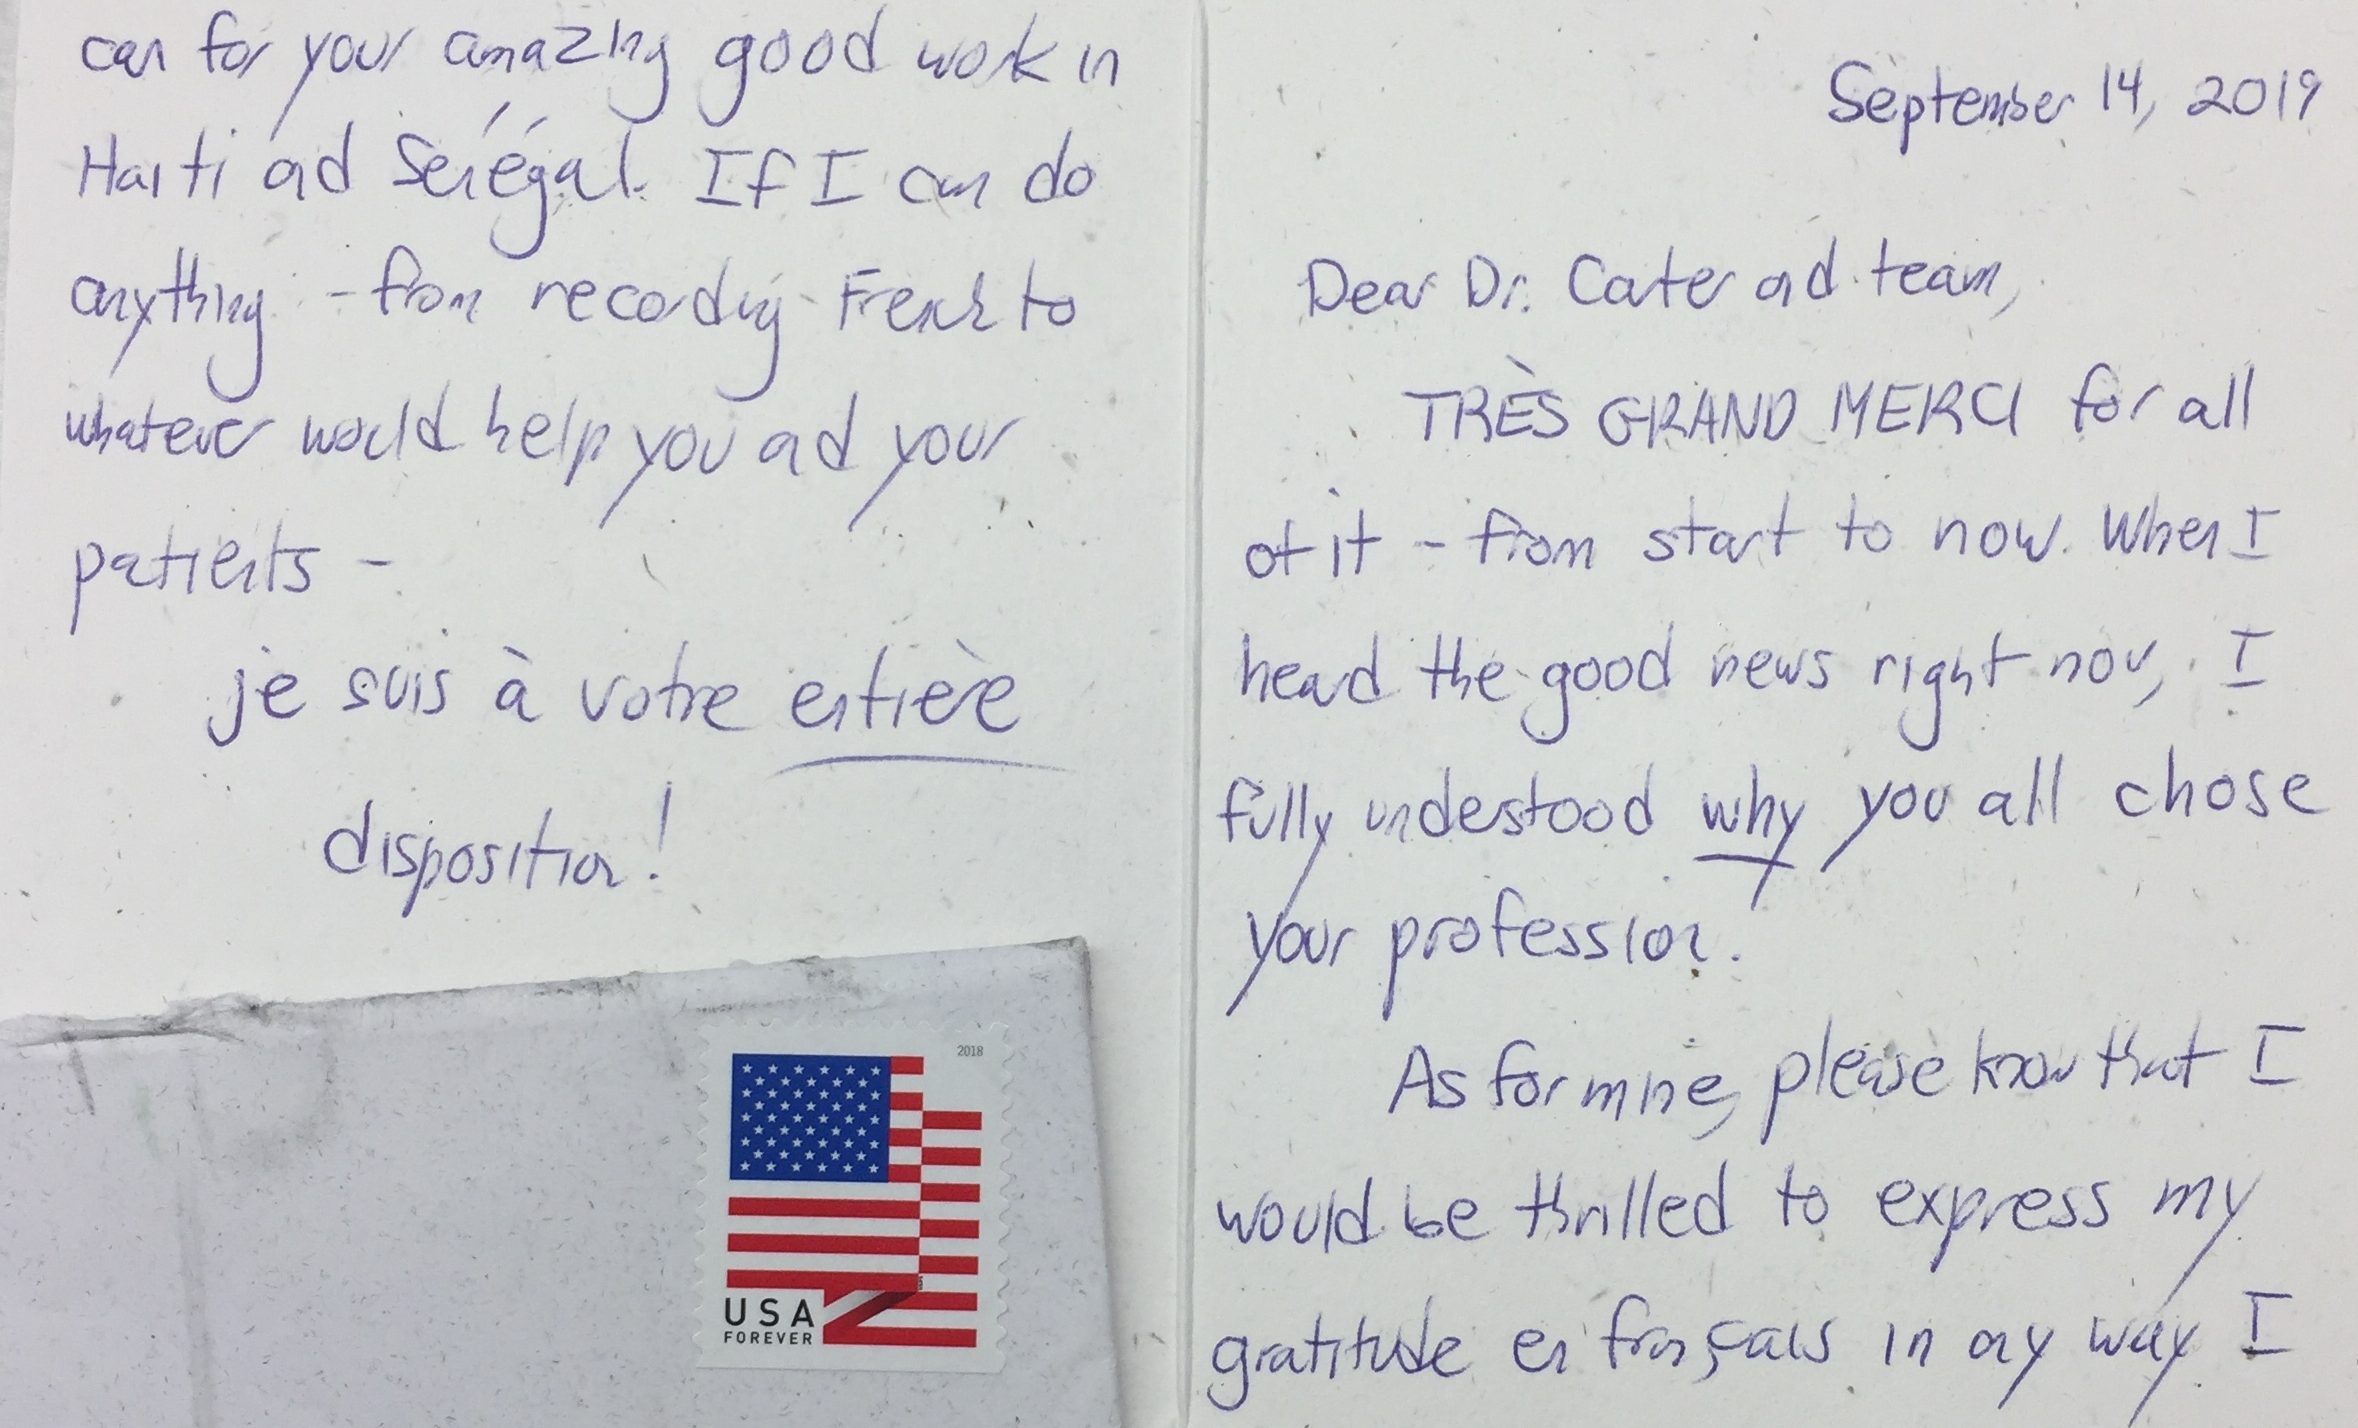 September 14, 2019
Dear Dr. Carter and team,
TRÈS GRAND MERCI for all
of it - from start to now. When I
heard the good news right now, I
fully understood why you all chose
your profession.
As for mine, please know that I
would be thrilled to express my
gratitude en français in any way I
can for your amazing good work in
Haiti and Sénégal. If I can do
anything - from recording French to
whatever would help you and your
patients -
je suis à votre entière
disposition!
2018
USA
FOREVER